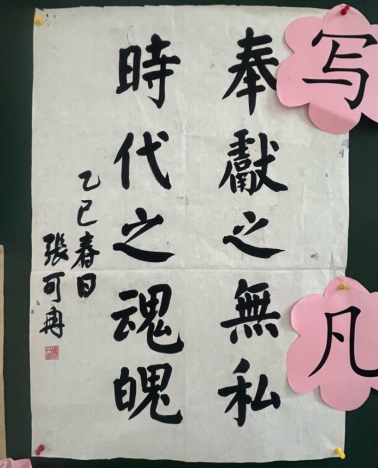 奉獻之無私
時代之魂魄
乙巳春日
張可冉
写
凡